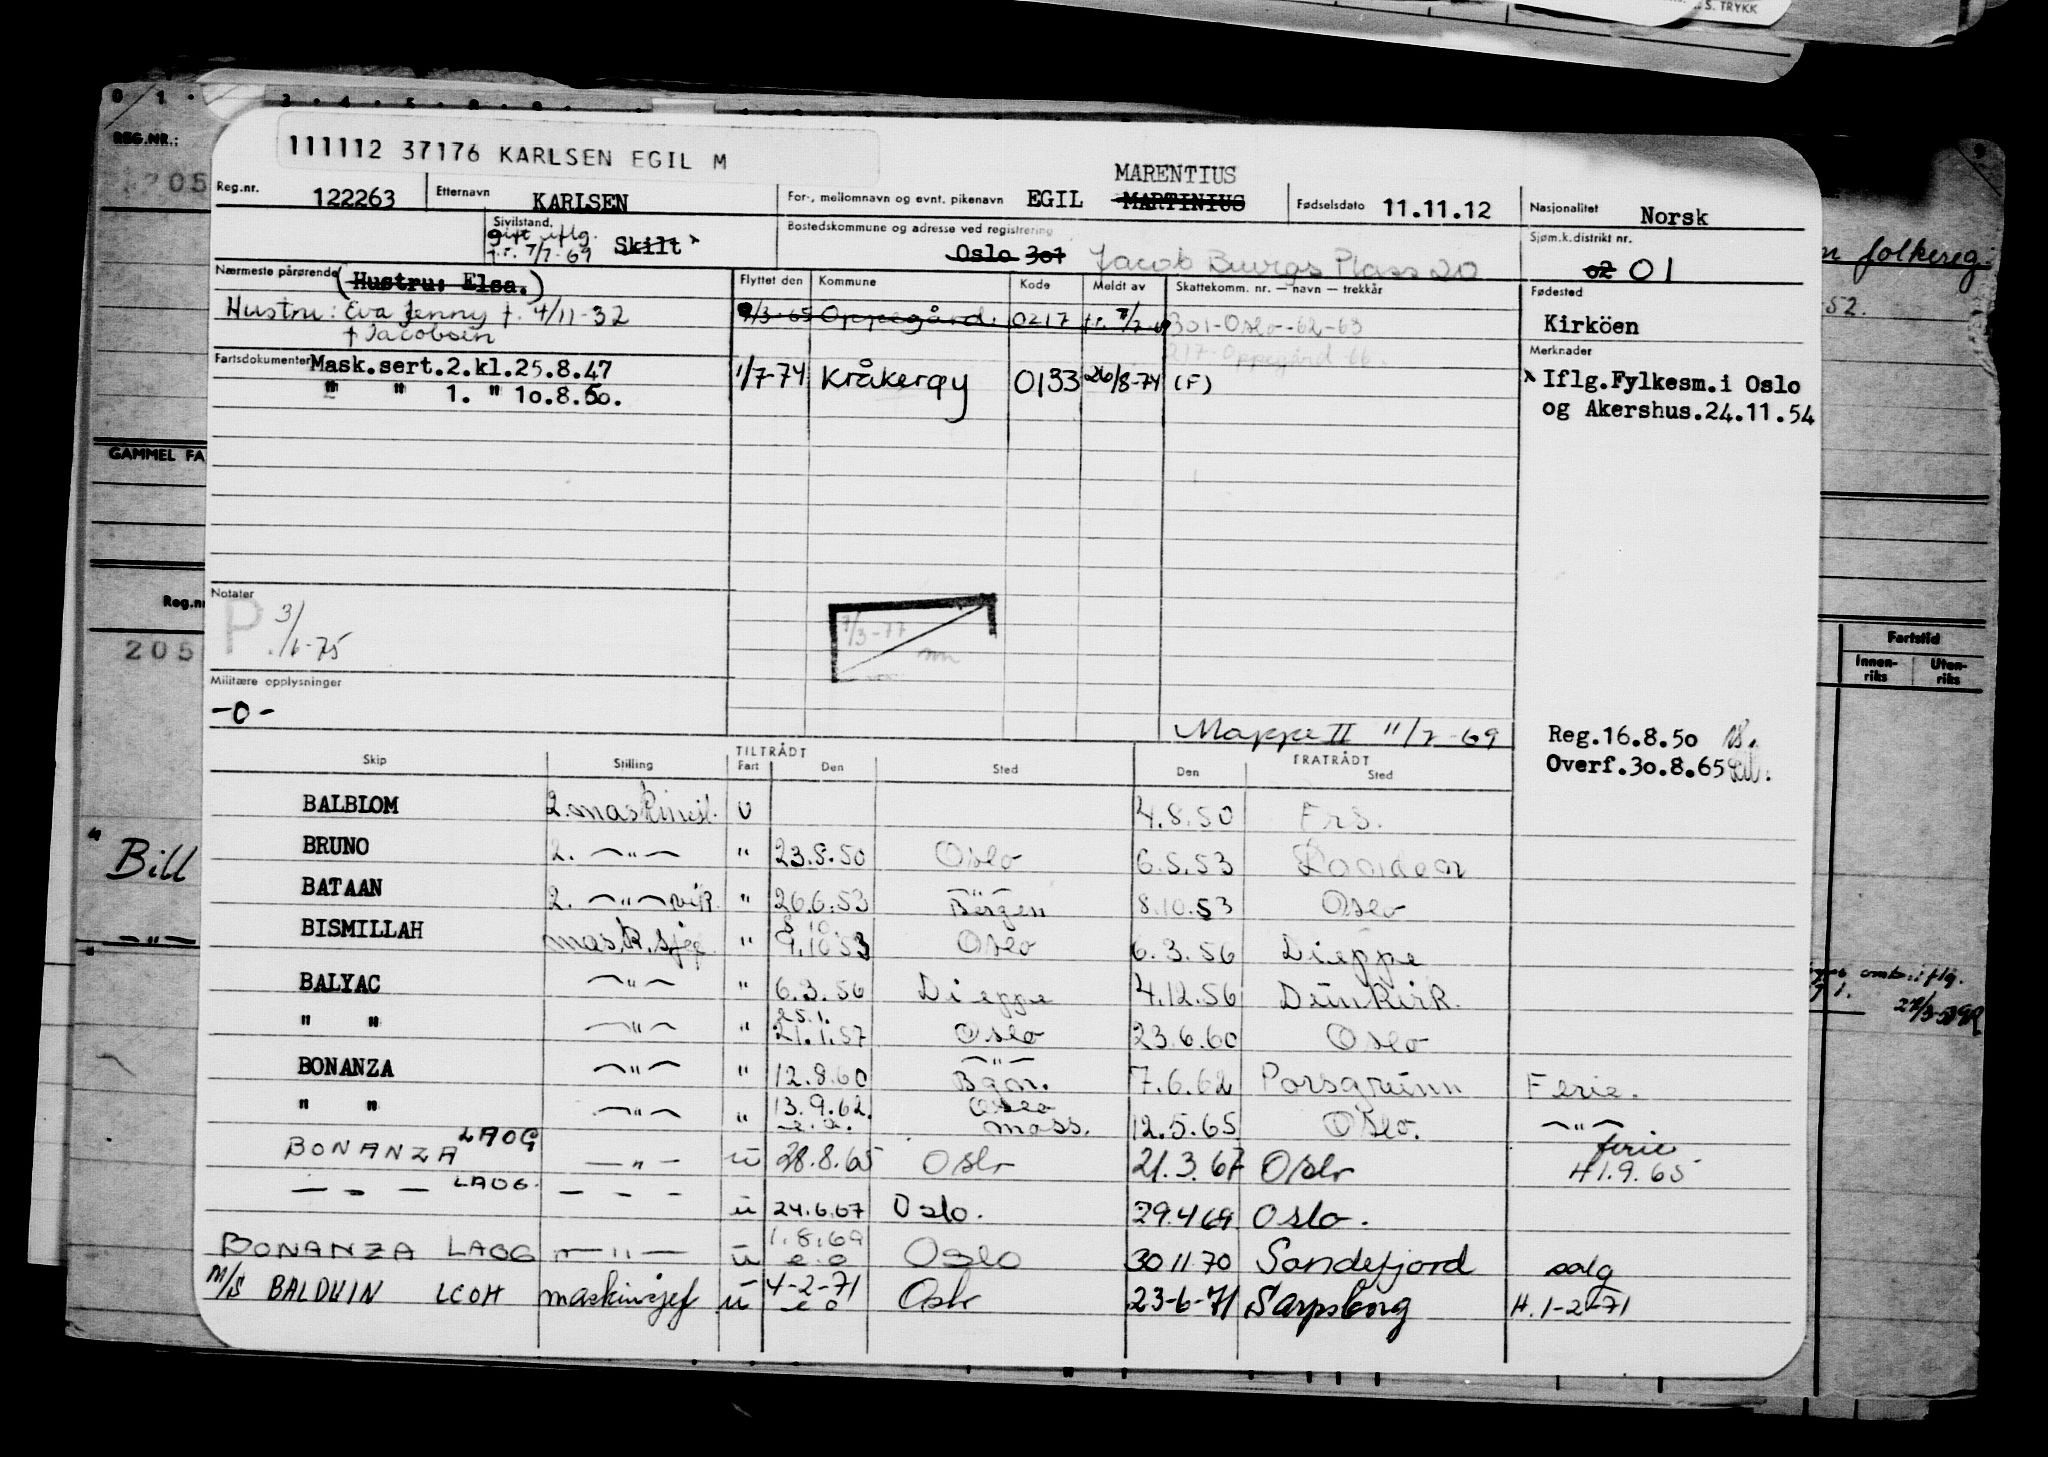 S. TRYKK
REG.NR.:
111112 37176 KARLSEN EGIL M
MARENTIUS
Reg.nr. 122263 Etternavn KARLSEN For-, mellomnavn og evnt. pikenavn EGIL MARTINIUS Fødselsdato 11.11.12 Nasjonalitet Norsk
Sivilstand. gift iflg. f.r. 7/7-69 Skilt x Bostedskommune og adresse ved registrering Oslo 301 Jacob Buurgs Plass 20 Sjøm.k.distrikt nr. 02 01
Nærmeste pårørende (Hustru: Elsa.) Flyttet den Kommune Kode Meldt av Skattekomm. nr. — navn — trekkår Fødested
Hustru: Eva Jenny f. 4/11-32 9/3-65 Oppegård. 0217 f.r. 301-Oslo-62-63 Kirköen
f Jacobsen 217-Oppegård-66. Merknader
Fartsdokumenter Mask.sert.2.kl.25.8.47 1/7-74 Kråkerøy 0133 26/8-74 (F) x Iflg.Fylkesm.i Oslo
" " 1. " 10.8.50. og Akershus.24.11.54
GAMMEL FA
n folkereg.
52.
Notater
P 3/1-75
7/3-77
Reg.nr
205
Militære opplysninger
-0-
Mappe II 11/7-69
Reg.16.8.50
Overf.30.8.65
Fartstid
Innen-riks Uten-riks
Skip Stilling TILTRÅDT Fart Den Sted FRATRÅDT Den Sted
BALBLOM 2.maskinist. U 4.8.50 Frs.
BRUNO 2. —"— " 23.8.50 Oslo 6.5.53 London
BATAAN 2. —"— vik. " 26.6.53 —"— Bergen 8.10.53 Oslo
BISMILLAH mask.sjef. " 8 10. 9.10.53 Oslo 6.3.56 Dieppe
BALYAC —"— " 6.3.56 Dieppe 4.12.56 Dunkirk.
" " —"— " 25.1. 21.1.57 Oslo 23.6.60 Oslo
BONANZA —"— " 12.8.60 —"— Bgn. 7.6.62 Porsgrunn Ferie.
" " —"— " 13.9.62. e.o. Oslo Moss. 12.5.65 Oslo. —"—
BONANZA LAOG —"— u 28.8.65 Oslo 21.3.67 Oslo ferie H 1.9.65
— — — LAOG. — — — u 24.6.67 Oslo. 29.4 69 Oslo.
BONANZA LAOG —"— u 1.8.69 e.o Oslo 30 11 70 Sandefjord salg
M/S BALDUIN LCOH maskinsjef u 4-2-71 e o Oslo 23-6-71 Sarpsborg H. 1-2-71
" Bill
—"—
omb.iflg.